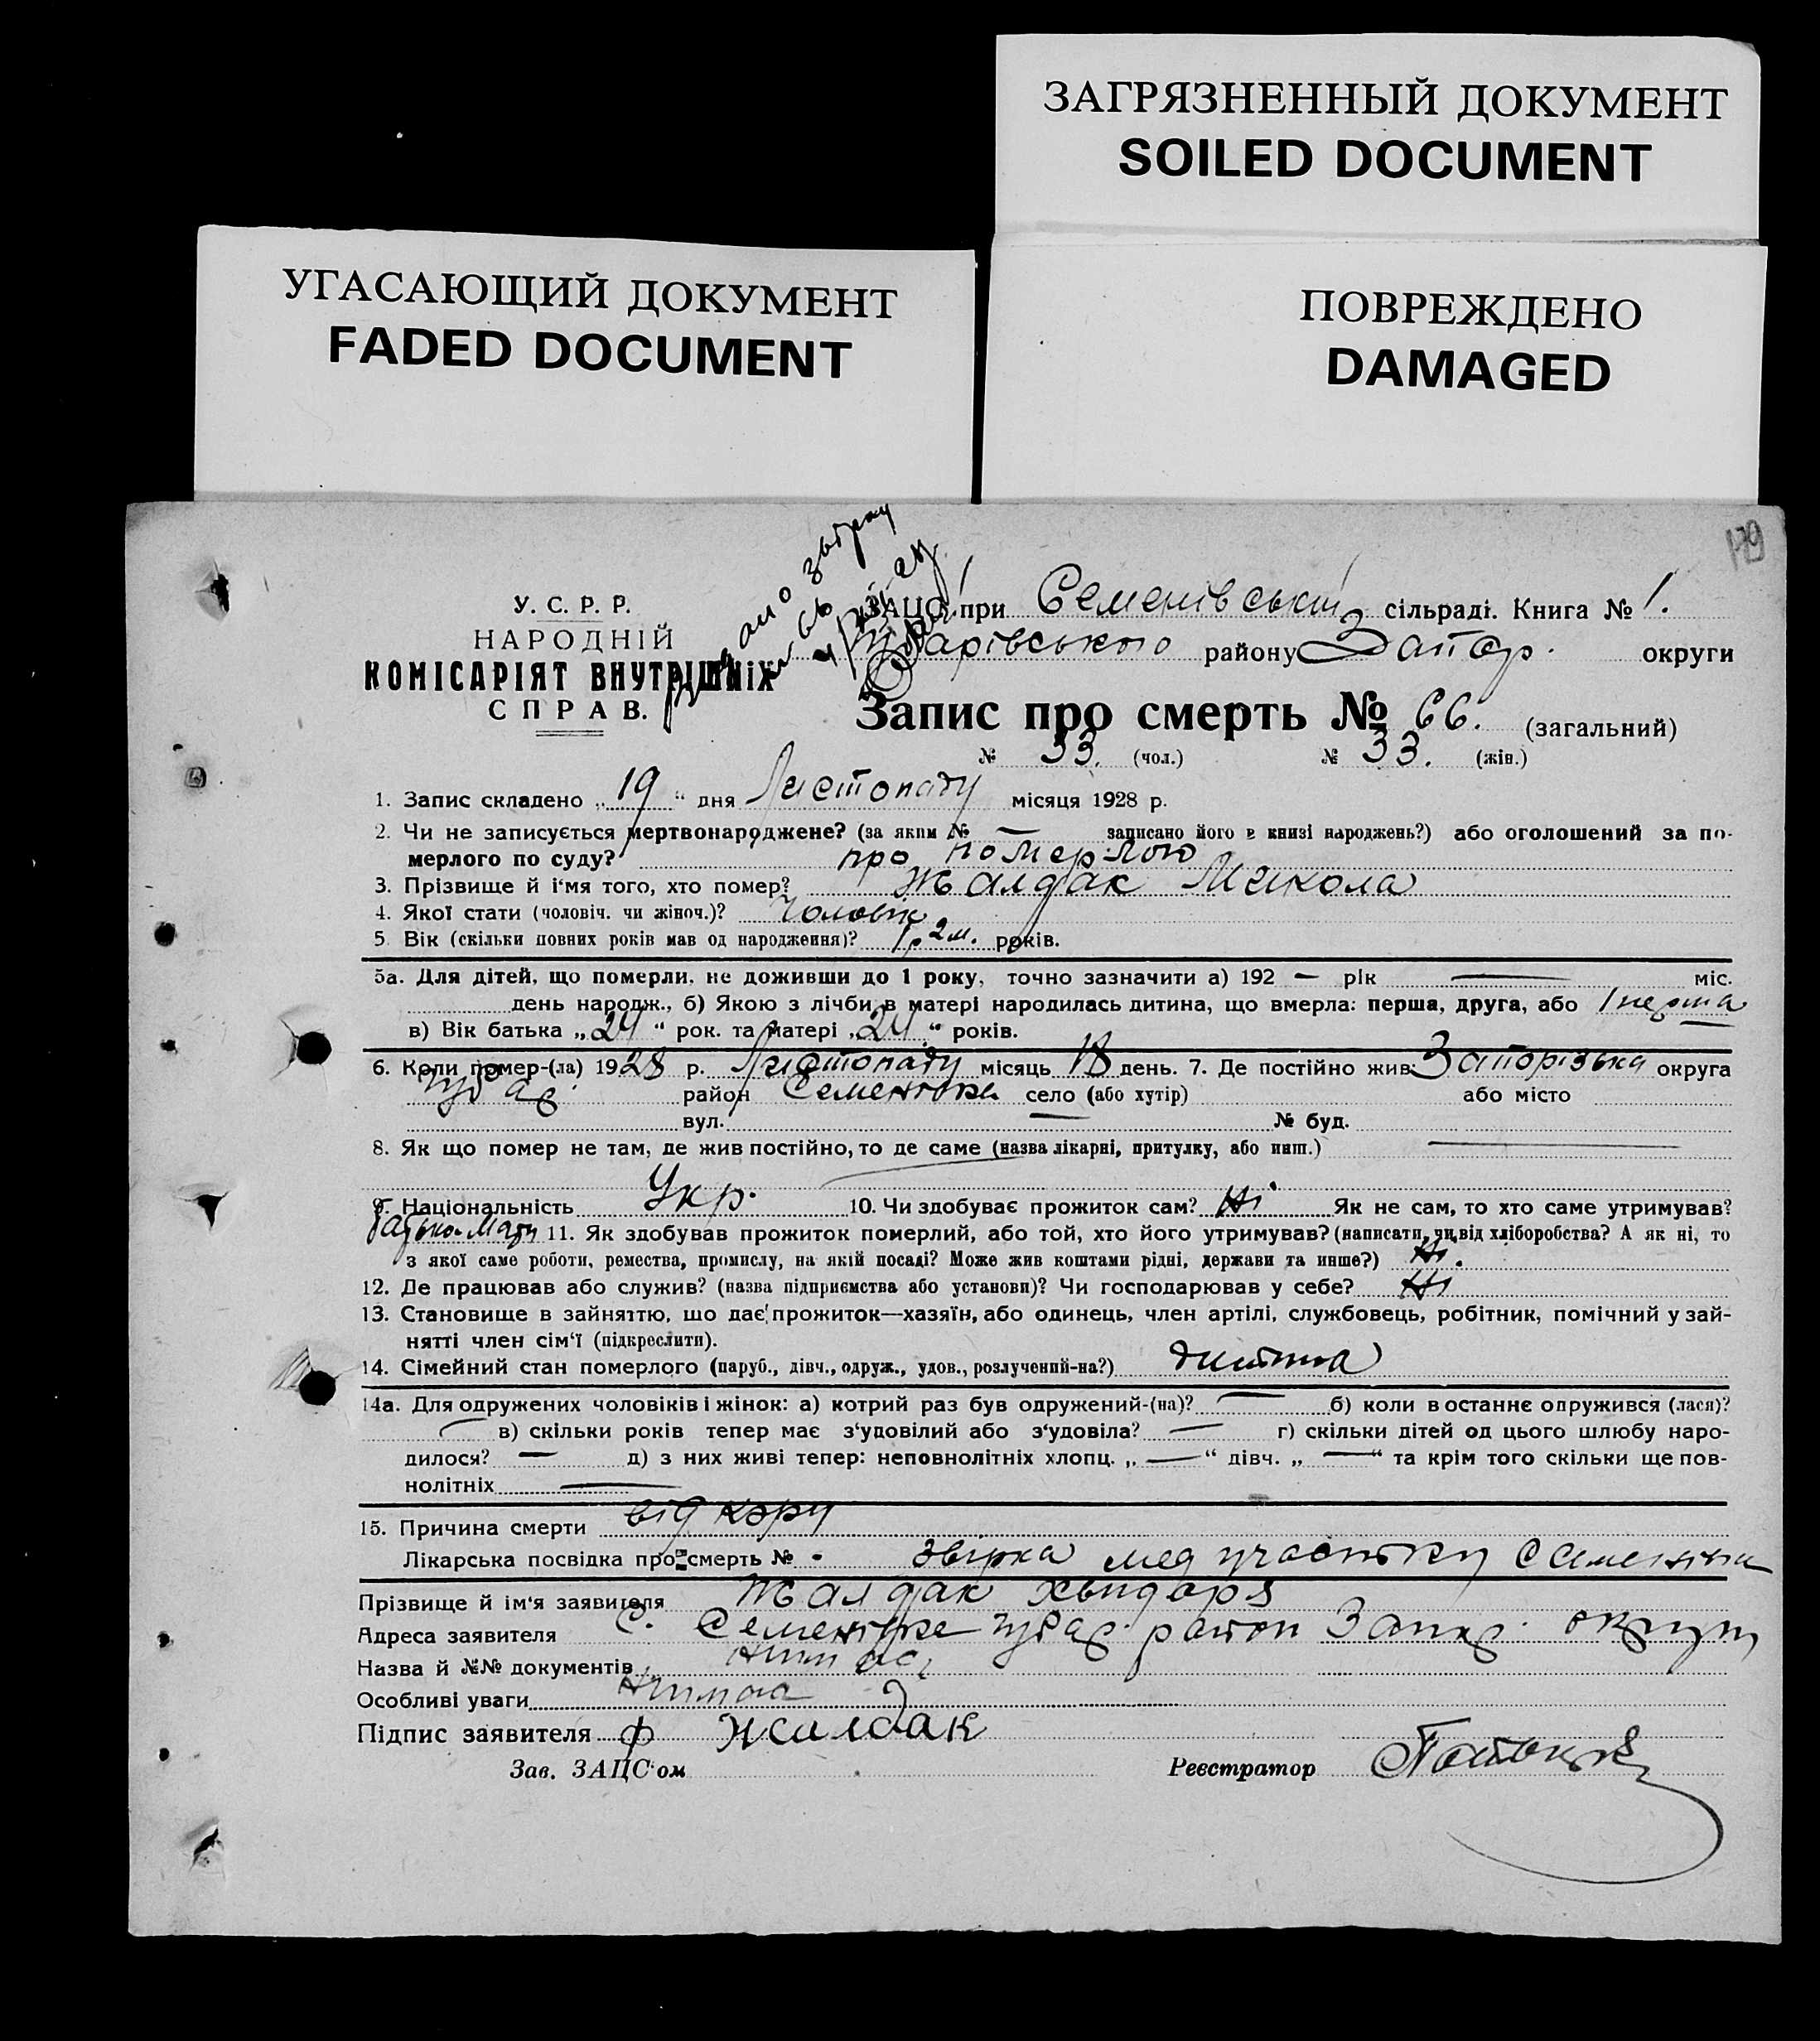 ЗАГРЯЗНЕННЫЙ ДОКУМЕНТ
SOILED DOCUMENT
УГАСАЮЩИЙ ДОКУМЕНТ
FADED DOCUMENT
ПОВРЕЖДЕНО
DAMAGED
179
У. С. Р. Р.
НАРОДНІЙ
КОМІСАРІЯТ ВНУТРІШНІХ
СПРАВ.
ЗАЦС при Семенівській сільраді. Книга № 1.
району Запор. округи
Запис про смерть № 66. (загальний)
№ 33. (чол.) № 33. (жін.)
1. Запис складено „ 19 “ дня Листопаду місяця 1928 р.
2. Чи не записується мертвонароджене? (за яким № — записано його в книзі народжень?) або оголошений за по-
мерлого по суду? про померлого
3. Прізвище й і'мя того, хто помер? Жалдак Микола
4. Якої стати (чоловіч. чи жіноч.)? Чоловік
5. Вік (скільки повних років мав од народження)? 1 р 2 м. років.
5а. Для дітей, що померли, не доживши до 1 року, точно зазначити а) 192 — рік — міс.
день народж., б) Якою з лічби в матері народилась дитина, що вмерла: перша, друга, або перша
в) Вік батька „ 24 “ рок. та матері „ 24 “ років.
6. Коли помер-(ла) 1928 р. Листопаду місяць 18 день. 7. Де постійно жив: Запорізька округа
район Семенівка село (або хутір) або місто
вул. — № буд.
8. Як що помер не там, де жив постійно, то де саме (назва лікарні, притулку, або инш.) —
9. Національність Укр. 10. Чи здобуває прожиток сам? Ні Як не сам, то хто саме утримував?
батько Мати 11. Як здобував прожиток померлий, або той, хто його утримував? (написати, чи від хліборобства? А як ні, то
з якої саме роботи, ремества, промислу, на якій посаді? Може жив коштами рідні, держави та инше?) Ні.
12. Де працював або служив? (назва підприємства або установи)? Чи господарював у себе? Ні
13. Становище в зайняттю, що дає прожиток—хазяїн, або одинець, член артілі, службовець, робітник, помічний у зай-
нятті член сім'ї (підкреслити).
14. Сімейний стан померлого (паруб., дівч., одруж., удов., розлучений-на?) дитина
14а. Для одружених чоловіків і жінок: а) котрий раз був одружений-(на)? — б) коли в останнє одружився (лася)?
— в) скільки років тепер має з'удовілий або з'удовіла? — г) скільки дітей од цього шлюбу наро-
дилося? — д) з них живі тепер: неповнолітніх хлопц. „ — “ дівч. „ — “ та крім того скільки ще пов-
нолітніх —
15. Причина смерти від кору
Лікарська посвідка про смерть № звірка мед участку
Прізвище й ім'я заявителя Жалдак
Адреса заявителя с. Семенівка район Запор. округи
Назва й №№ документів
Особливі уваги нимає
Підпис заявителя ф Жалдак
Зав. ЗАЦС'ом Реєстратор